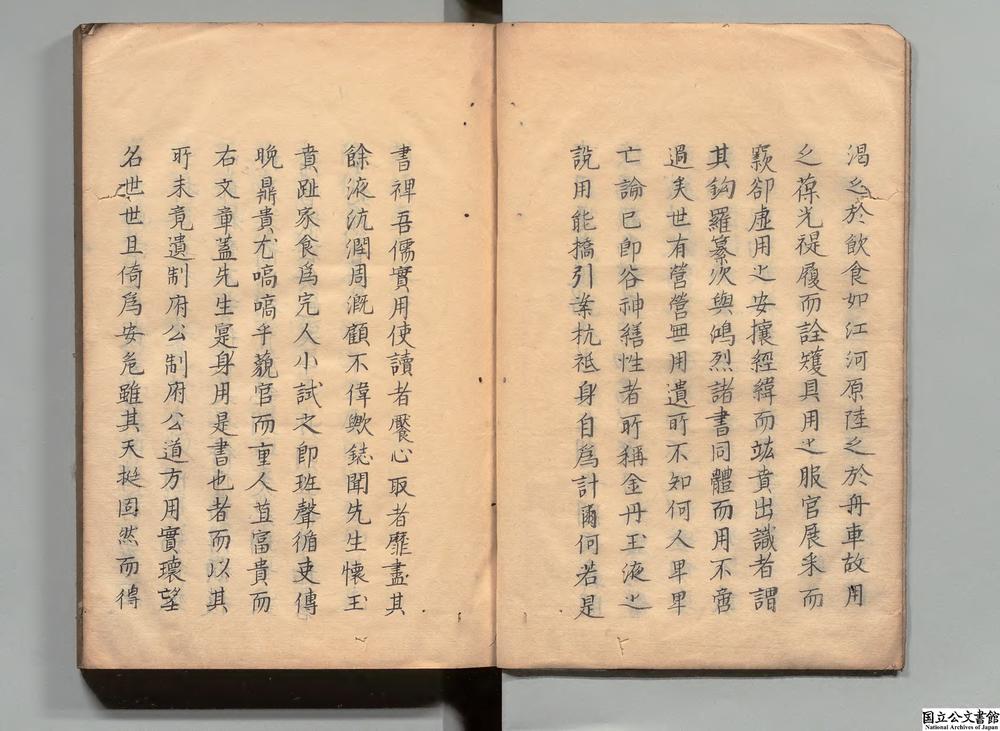 渴之於飲食如江河原陸之於舟車故用
之葆光禔履而詮矱具用之服官展采而
窾卻虛用之安攘經緯而竑賁出識者謂
其鈎羅纂次與鴻烈諸書同體而用不啻
過矣世有營營無用遺所不知何人早早
亡論已卽谷神繕性者所稱金丹玉液之
說用能撟引業杭祗身自爲計爾何若是
書裨吾儒實用使讀者饜心取者靡盡其
餘液沆瀾周溉顧不偉歟鋕聞先生懷玉
賁趾家食爲完人小試之卽班聲循吏傳
晚鼎貴尤嗃嗃乎藐官而重人苴富貴而
右文章蓋先生寔身用是書也者而以其
所未竟遺制府公制府公道方用實瓌望
名世世且倚爲安危雖其天挺固然而得
国立公文書館
National Archives of Japan